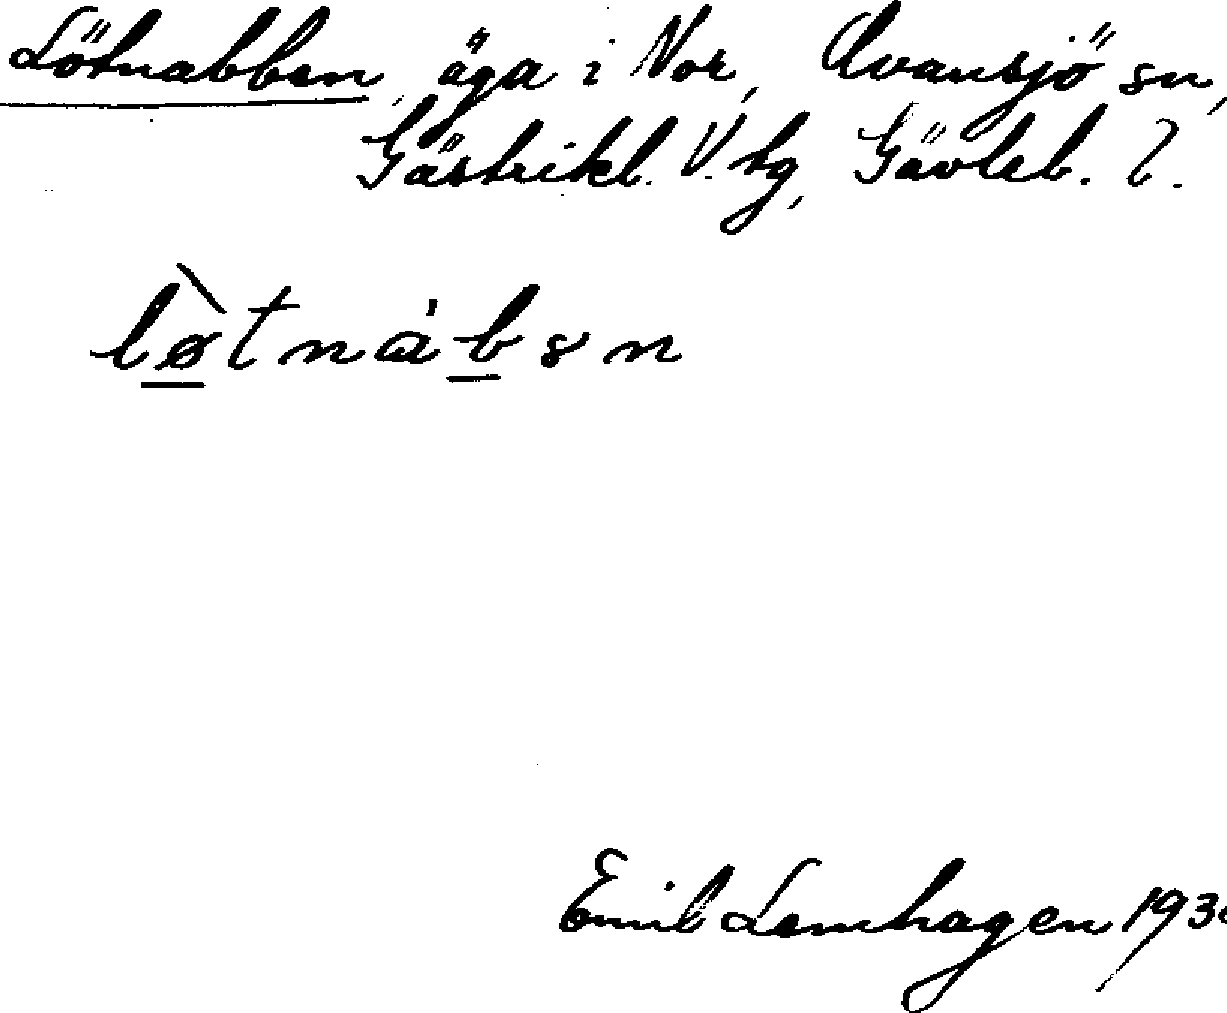 Lötnabben, äga i Nor, Ovansjö sn,
Gästrikl. V. tg, Gävleb. l.
lø̀tnábən
Emil Lemhagen 193